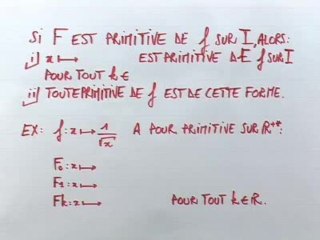 SI F EST PRIMITIVE DE f SUR I, ALORS:
i) x ⟼ EST PRIMITIVE DE f SUR I
POUR TOUT k ∈
ii) TOUTE PRIMITIVE DE f EST DE CETTE FORME.
EX: f: x ⟼ 1/√x A POUR PRIMITIVE SUR ℝ⁺*:
F₀: x ⟼
F₁: x ⟼
Fk: x ⟼ POUR TOUT k ∈ ℝ.